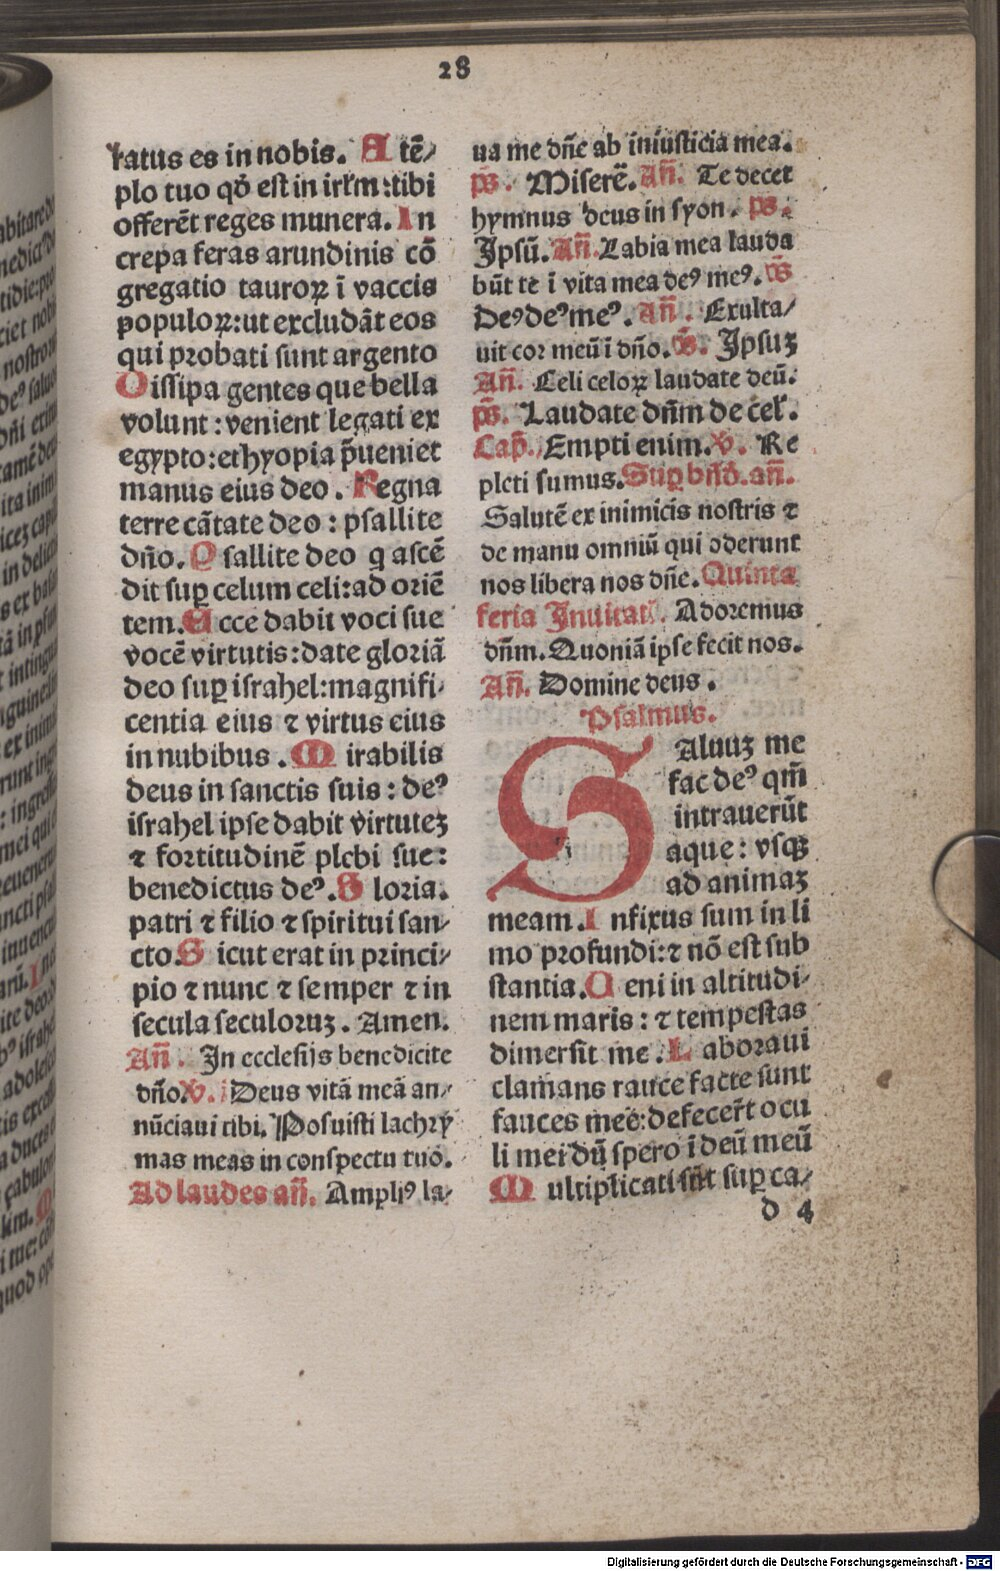 28
ratus es in nobis. A tē/
plo tuo qď est in irłm : tibi
offerēt reges munera. In
crepa feras arundinis cō
gregatio tauroꝝ ī vaccis
populoꝝ: ut excludāt eos
qui probati sunt argento
Dissipa gentes que bella
volunt : venient legati ex
egypto: ethyopia p̄ueniet
manus eius deo. Regna
terre cātate deo : psallite
dño. Psallite deo q ascē
dit suꝑ celum celi: ad oriē
tem. Ecce dabit voci sue
vocē virtutis: date gloriā
deo suꝑ israhel: magnifi/
centia eius ⁊ virtus eius
in nubibus. Mirabilis
deus in sanctis suis : deꝰ
israhel ipse dabit virtuteȝ
⁊ fortitudinē plebi sue:
benedictus deꝰ. Gloria.
patri ⁊ filio ⁊ spiritui san/
cto. Sicut erat in princi/
pio ⁊ nunc ⁊ semper ⁊ in
secula seculoruȝ. Amen.
Añ. In ecclesijs benedicite
dño ꝟ. Deus vitā meā an/
nūciaui tibi. Posuisti lachry
mas meas in conspectu tuo.
Ad laudes añ. Ampliꝰ la/
ua me dñe ab iniusticia mea.
p̄s. Miserē. Añ. Te decet
hymnus deus in syon. ps.
Ipsū. Añ. Labia mea lauda
būt te ī vita mea deꝰ meꝰ. p̄s
Deꝰ deꝰ meꝰ. Añ. Exulta/
uit cor meū ī dño. p̄s. Ipsuȝ
Añ. Celi celoꝝ laudate deū.
p̄s. Laudate dñm de cel.
Cap̄. Empti enim. ꝟ. Re
pleti sumus. Suꝑ bñd̄. añ.
Salutē ex inimicis nostris ⁊
de manu omniū qui oderunt
nos libera nos dñe. Quinta
feria Inuitat. Adoremus
dñm. Quoniā ipse fecit nos.
Añ. Domine deus.
Psalmus.
Saluuȝ me
fac deꝰ qm̄
intrauerūt
aque : vsqꝫ
ad animaȝ
meam. Infixus sum in li
mo profundi: ⁊ nō est sub
stantia. Ueni in altitudi/
nem maris : ⁊ tempestas
dimersit me. Laboraui
clamans rauce facte sunt
fauces mee: defecer̄t ocu
li mei dū spero ī deū meū
Multiplicati sūt suꝑ ca/
d 4
Digitalisierung gefördert durch die Deutsche Forschungsgemeinschaft - DFG